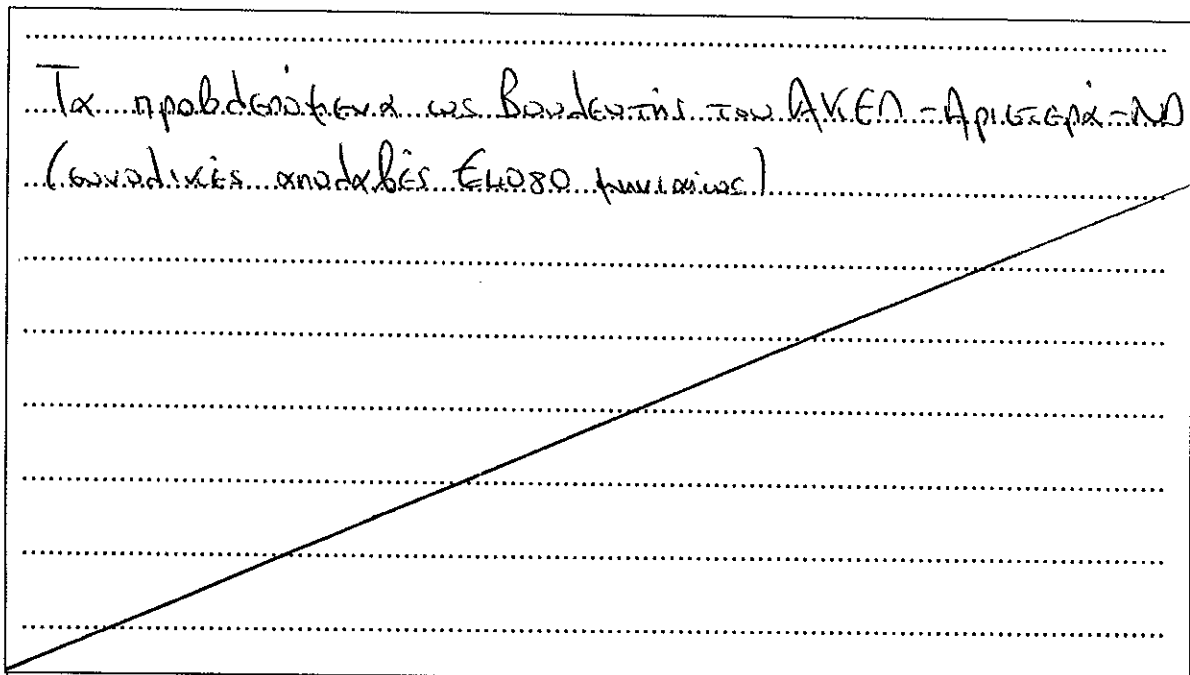 Τα προβλεπόμενα ως Βουλευτής του ΑΚΕΛ-Αριστερά-ΝΔ
(συνολικές απολαβές €4080 μηνιαίως)